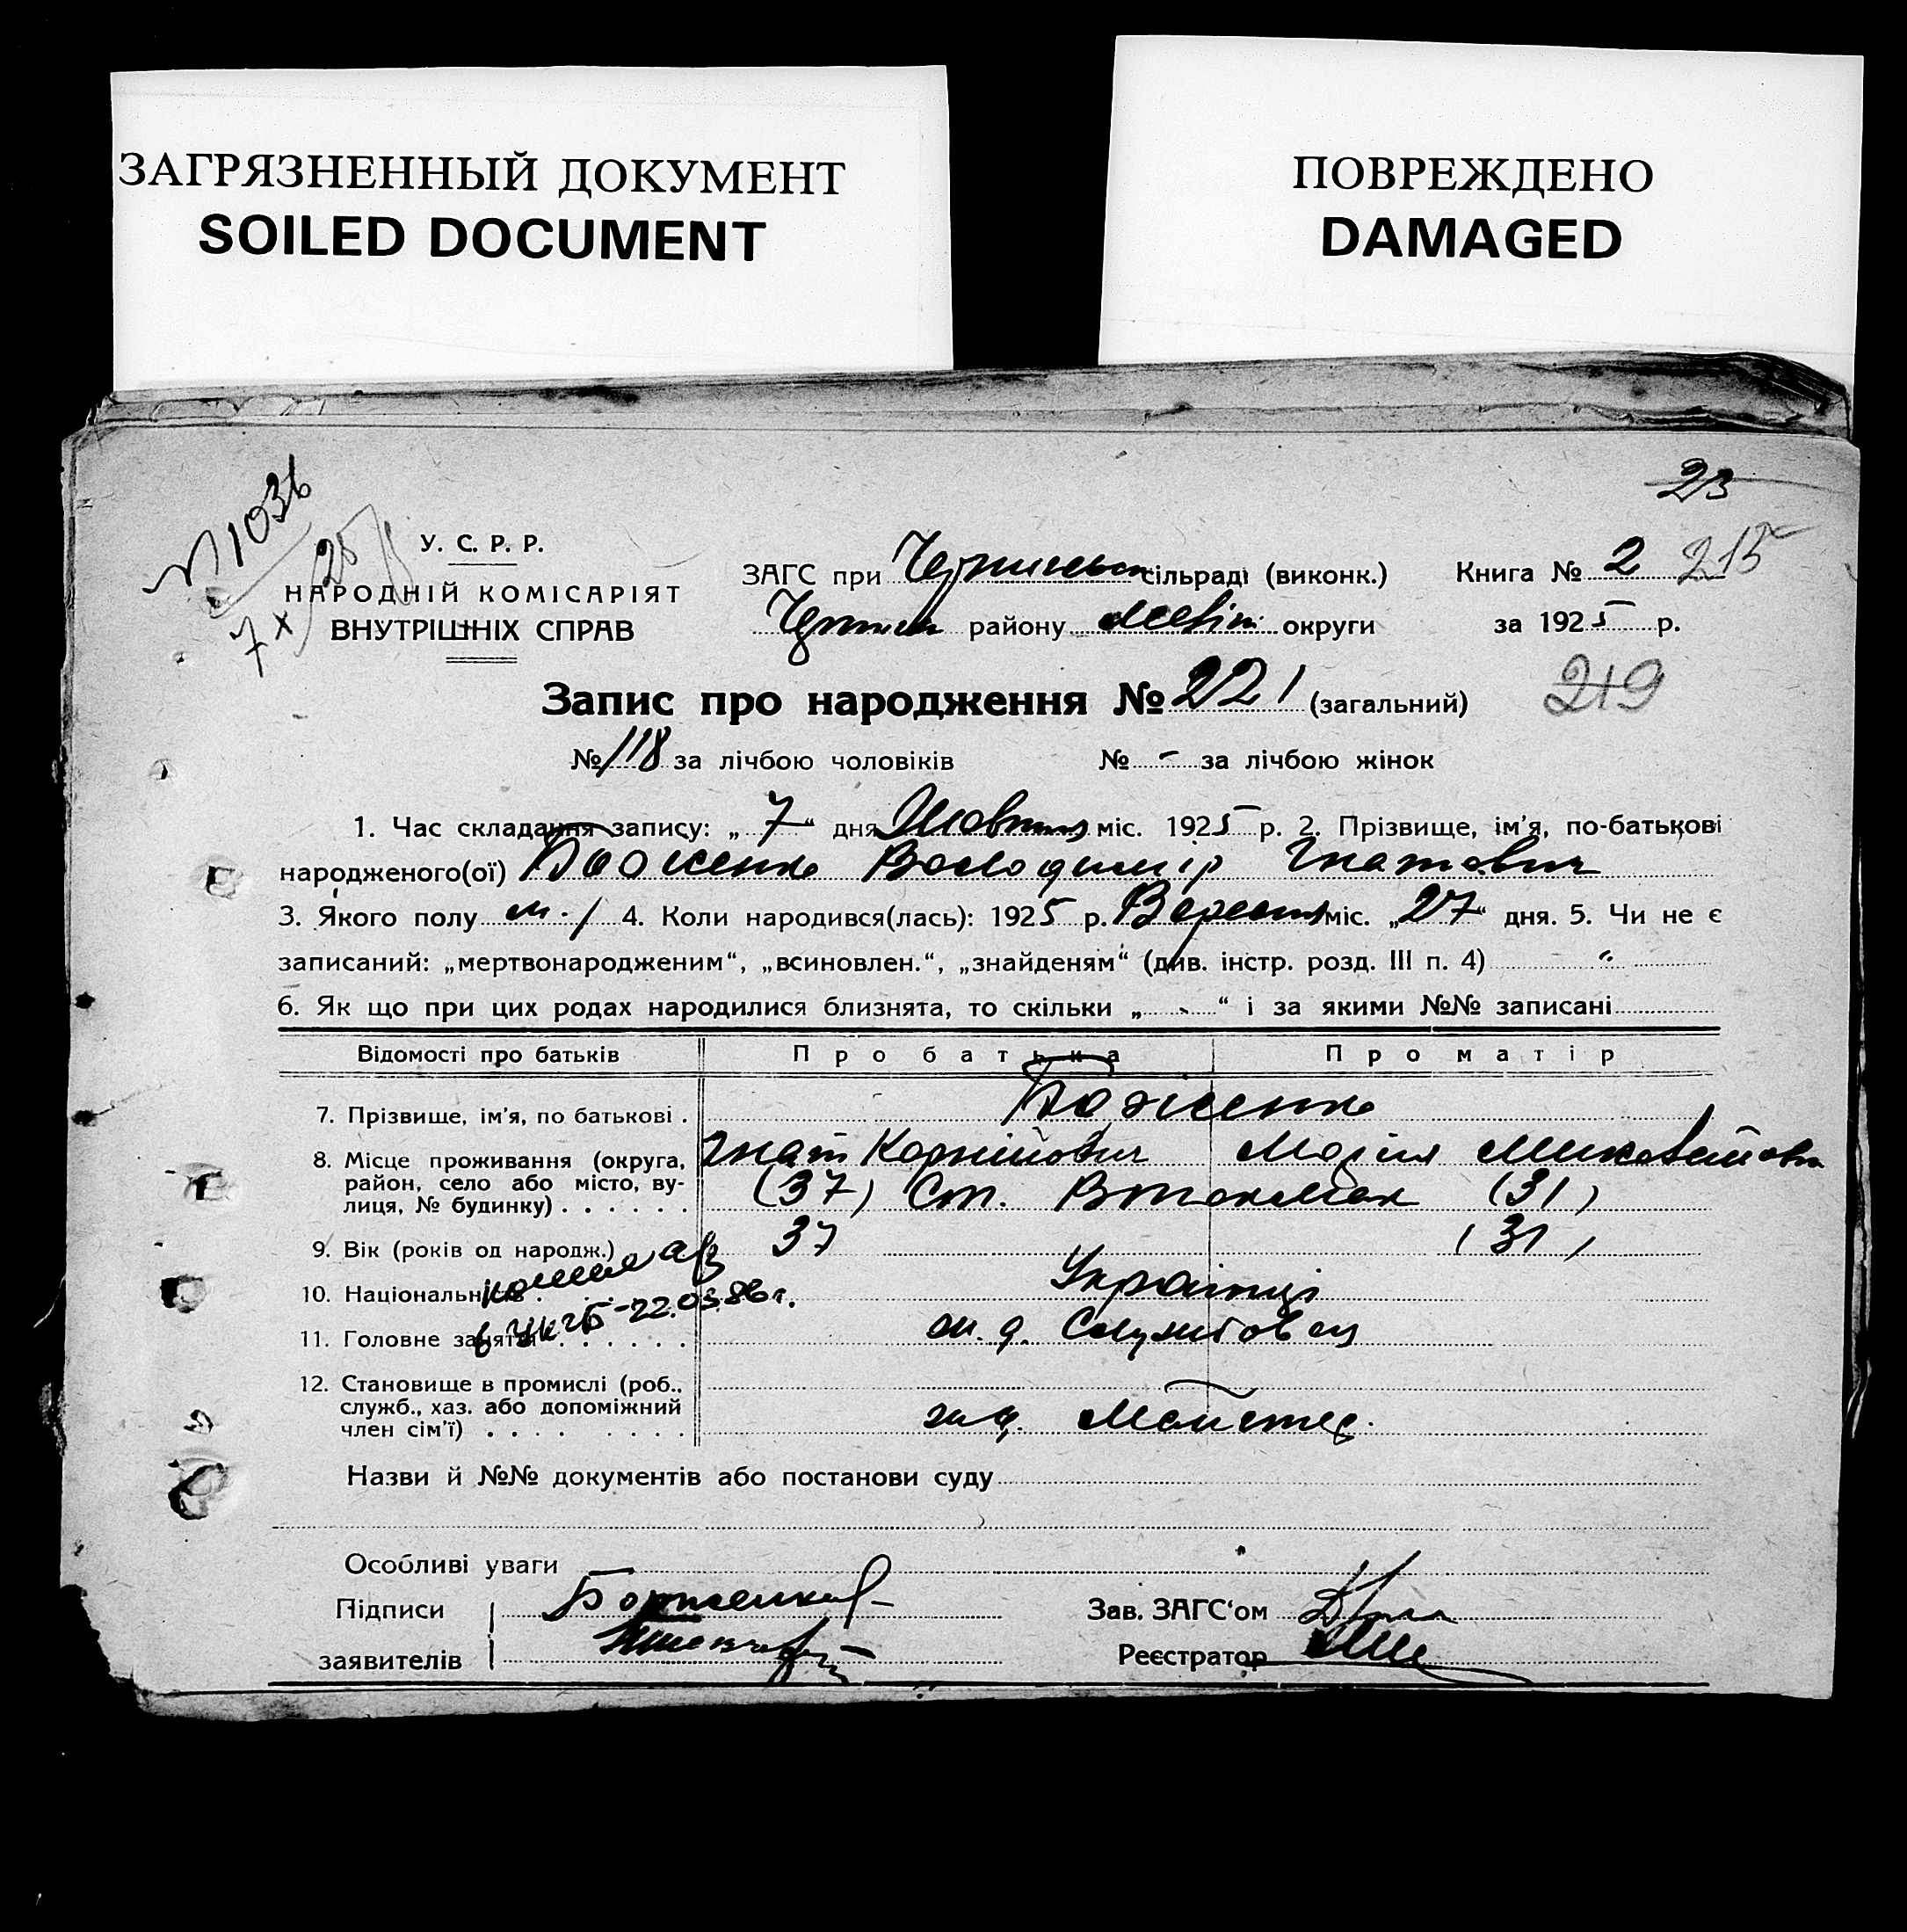 ЗАГРЯЗНЕННЫЙ ДОКУМЕНТ
SOILED DOCUMENT
ПОВРЕЖДЕНО
DAMAGED
23
№ 1036
7/X 25
У. С. Р. Р.
НАРОДНІЙ КОМІСАРІЯТ
ВНУТРІШНІХ СПРАВ
ЗАГС при сільраді (виконк.) Книга № 2 215
району округи за 1925 р.
Запис про народження № 221 (загальний) 219
№ 118 за лічбою чоловіків № - за лічбою жінок
1. Час складання запису: „ 7 “ дня Жовтня міс. 1925 р. 2. Прізвище, ім'я, по-батькові
народженого(ої) Боженко Володимір Гнатович
3. Якого полу м. 4. Коли народився(лась): 1925 р. Вересня міс. „27“ дня. 5. Чи не є
записаний: „мертвонародженим“, „всиновлен.“, „знайденям“ (див. інстр. розд. III п. 4) “
6. Як що при цих родах народилися близнята, то скільки „ - “ і за якими №№ записані
Відомості про батьків Про батька Про матір
7. Прізвище, ім'я, по батькові . Боженко
8. Місце проживання (округа, Гнат Корнійович Марія
район, село або місто, ву-
лиця, № будинку) . . . . . . (37) Ст. (31)
9. Вік (років од народж.) 37 (31)
10. Національність Українці
в 22.03.86г.
11. Головне заняття . . . . . . ж.д. Службовец
12. Становище в промислі (роб.,
служб., хаз. або допоміжний
член сім'ї) . . . . . . . . ж.д. Майстер.
Назви й №№ документів або постанови суду
Особливі уваги
Підписи Боженко Зав. ЗАГС‘ом
заявителів Реєстратор